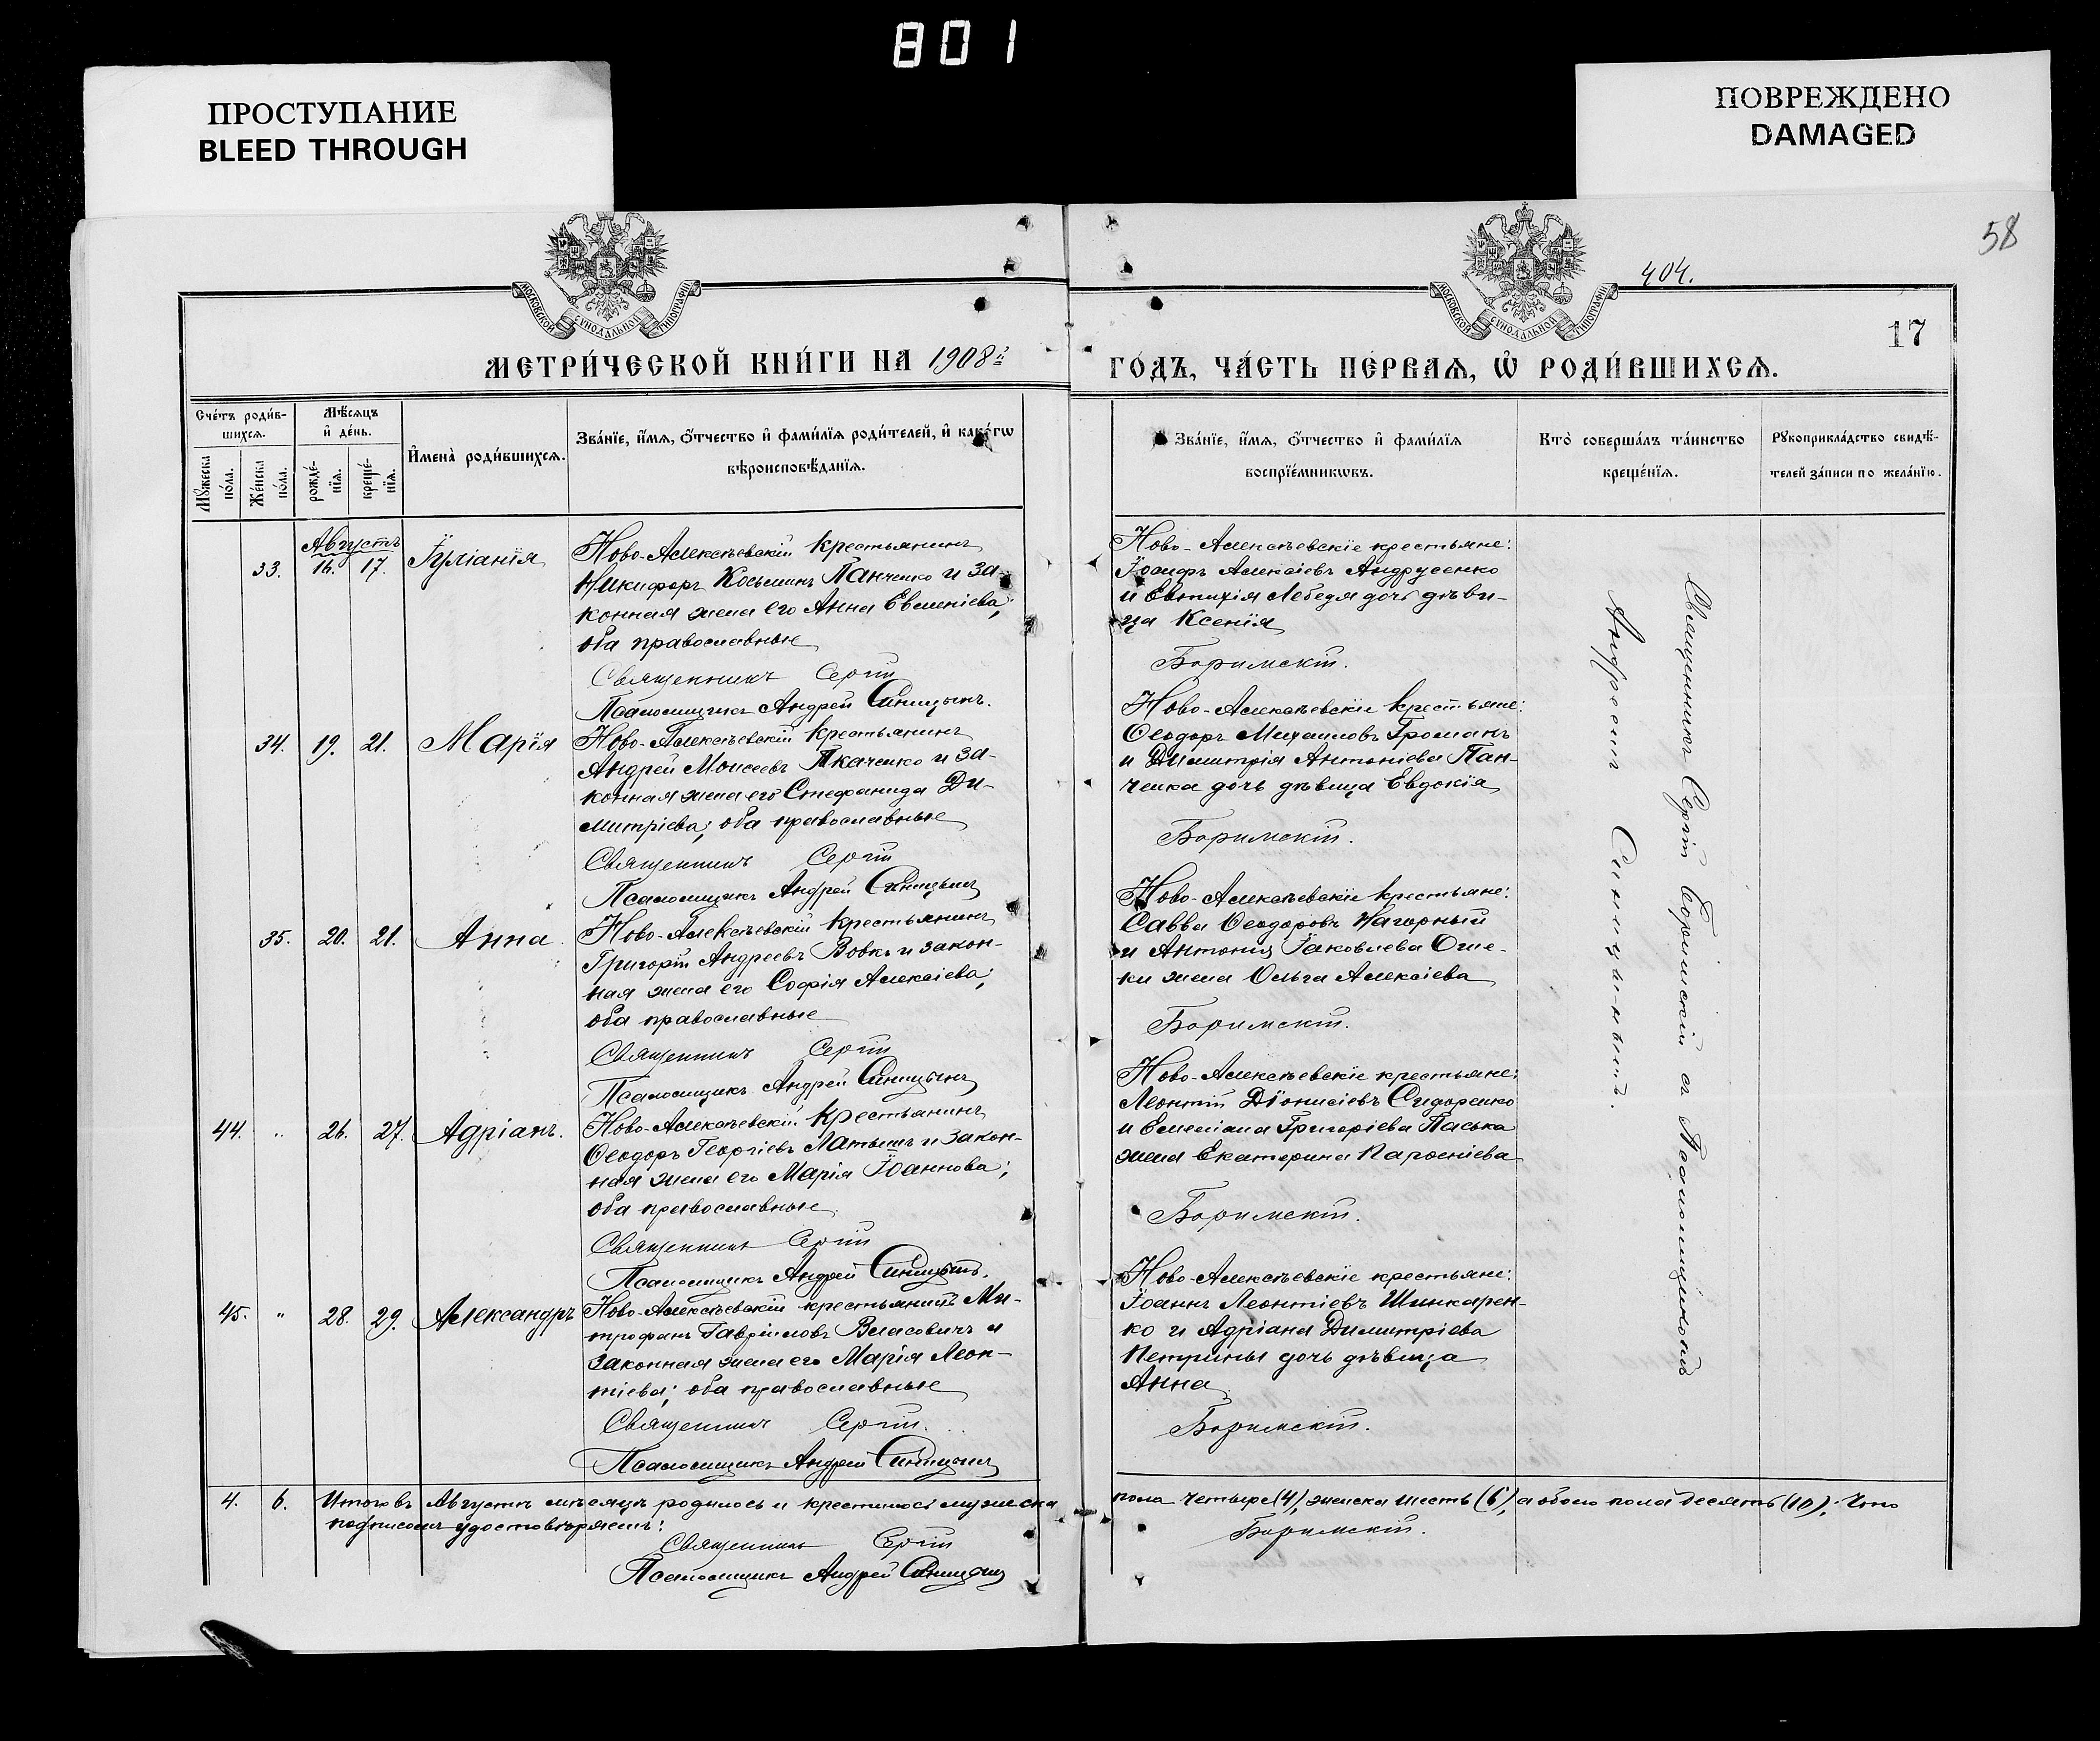 801
ПРОСТУПАНИЕ
BLEED THROUGH
ПОВРЕЖДЕНО
DAMAGED
58
404.
17
МОСКОВСКОЙ СѴНОДАЛЬНОЙ ТИПОГРАФІИ
МОСКОВСКОЙ СѴНОДАЛЬНОЙ ТИПОГРАФІИ
МЕТРИ́ЧЕСКОЙ КНИ́ГИ НА 1908й
ГО́ДЪ, ЧА́СТЬ ПЕ́РВАѦ, Ѡ҆ РОДИ́ВШИХСѦ.
Сче́тъ роди́в-
шихсѧ.
Мꙋ́жеска по́ла.
Же́нска по́ла.
Мѣ́сѧцъ
и҆ де́нь.
рожде́-
нїѧ.
креще́-
нїѧ.
И҆мена̀ роди́вшихсѧ.
Зва́нїе, и҆́мѧ, ѻ҆́тчество и҆ фами́лїѧ роди́телей, и҆ како́гѡ
вѣроисповѣ́данїѧ.
Зва́нїе, и҆́мѧ, ѻ҆́тчество и҆ фами́лїѧ
воспрїе́мникѡвъ.
Кто̀ соверша́лъ та́инство
креще́нїѧ.
Рꙋкоприкла́дство свидѣ́-
телей за́писи по жела́нїю.
Августъ
33. 16. 17. Іуліанія
Ново-Алексѣевскій крестьянинъ
Никифоръ Косьминъ Панченко и за-
конная жена его Анна Евменіева;
оба православные
Священникъ Сергій
Псаломщикъ Андрей Синицынъ.
Ново-Алексѣевскіе крестьяне:
Іосифъ Алексіевъ Андрусенко
и Евтихія Лебедя дочь дѣви-
ца Ксенія
Боримскій.
34. 19. 21. Марія
Ново-Алексѣевскій крестьянинъ
Андрей Моисеевъ Ткаченко и за-
конная жена его Стефанида Ди-
митріева; оба православные
Священникъ Сергій
Псаломщикъ Андрей Синицынъ
Ново-Алексѣевскіе крестьяне:
Ѳеодоръ Михаиловъ Громанъ
и Димитрія Антоніева Пан-
ченка дочь дѣвица Евдокія
Боримскій.
35. 20. 21. Анна.
Ново-Алексѣевскій крестьянинъ
Григорій Андреевъ Вовкъ и закон-
ная жена его Софія Алексіева;
оба православные
Священникъ Сергій
Псаломщикъ Андрей Синицынъ
Ново-Алексѣевскіе крестьяне:
Савва Ѳеодоровъ Нагорный
и Антонія Іаковлева Оме-
ки жена Ольга Алексіева
Боримскій.
44. " 26. 27. Адріанъ.
Ново-Алексѣевскій крестьянинъ
Ѳеодоръ Георгіевъ Матышъ и закон-
ная жена его Марія Іоаннова;
оба православные.
Священникъ Сергій
Псаломщикъ Андрей Синицынъ.
Ново-Алексѣевскіе крестьяне:
Леонтій Діонисіевъ Сидоренко
и Емеліана Григоріева Паська
жена Екатерина Парѳеніева
Боримскій.
45. " 28. 29. Александръ
Ново-Алексѣевскій крестьянинъ Ми-
трофанъ Гавріиловъ Власовичъ и
законная жена его Марія Леон-
тіева; оба православные
Священникъ Сергій.
Псаломщикъ Андрей Синицынъ
Ново-Алексѣевскіе крестьяне:
Іоаннъ Леонтіевъ Шинкарен-
ко и Адріана Димитріева
Петрины дочь дѣвица
Анна
Боримскій.
Священникъ Сергій Боримскій съ Псаломщикомъ
Андреемъ Синицынымъ.
4. 6. Итого въ Августѣ мѣсяцѣ родилось и крестилось мужеска пола четыре (4), женска шесть (6), а обоего пола десять (10). Что
подписомъ удостовѣряемъ:
Священникъ Сергій Боримскій.
Псаломщикъ Андрей Синицынъ